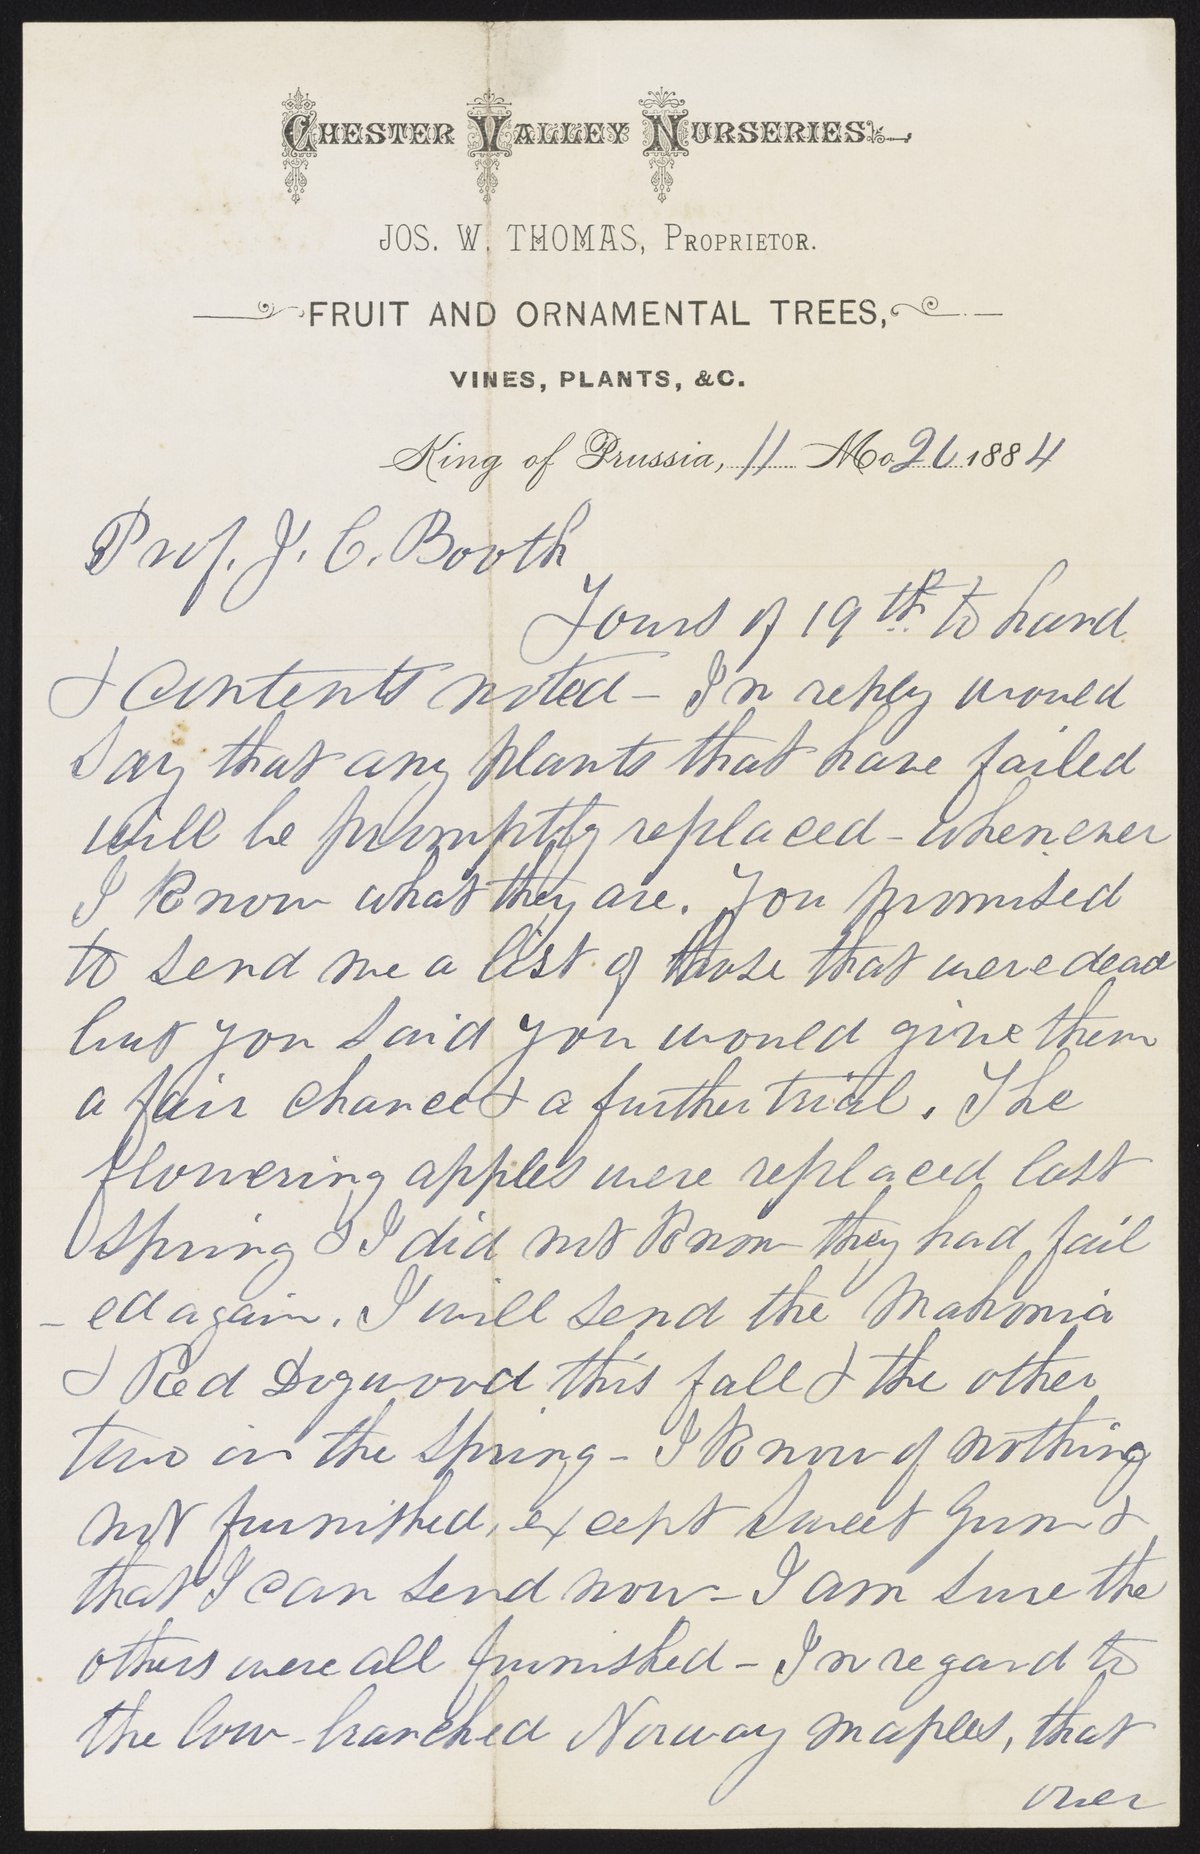 CHESTER VALLEY NURSERIES
JOS. W. THOMAS, PROPRIETOR.
FRUIT AND ORNAMENTAL TREES,
VINES, PLANTS, &C.
King of Prussia, 11 Mo 21 1884
Prof. J. C. Booth
Yours of 19th to hand
& contents noted – In reply would
say that any plants that have failed
will be promptly replaced – whenever
I know what they are. You promised
to send me a list of those that were dead
but you said you would give them
a fair chance & a further trial. The
flowering apples were replaced last
spring & I did not know they had fail
- ed again. I will send the Mahonia
& Red Dogwood this fall & the other
two in the spring – I know of nothing
not furnished, except Sweet Gum &
that I can send now – I am sure the
others were all furnished – In regard to
the low-branched Norway maples, that
over